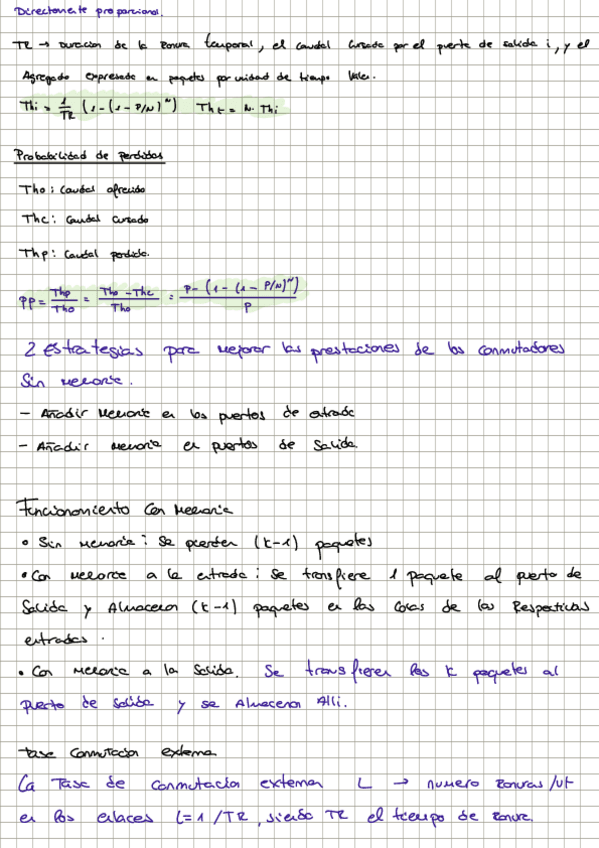 Directamente proporcional.
TR → Duracion de la Ranura temporal, el caudal cursado por el puerto de salida i, y el
Agregado expresado en paquetes por unidad de tiempo
Thi = 1/TR (1-(1-P/N)^N) Tht = N·Thi
Probabilidad de perdidas
Tho: Caudal ofrecido
Thc: Caudal cursado
Thp: Caudal perdido.
PP = Thp/Tho = (Tho - Thc)/Tho = (P-(1-(1-P/N)^N))/P
2 Estrategias para mejorar las prestaciones de los conmutadores
Sin memoria.
- Añadir memoria en los puertos de entrada
- Añadir memoria en puertos de Salida.
Funcionamiento Con Memoria
• Sin memoria: Se pierden (k-1) paquetes
• Con memoria a la entrada: Se transfiere 1 paquete al puerto de
Salida y Almacenan (k-1) paquetes en las Colas de las Respectivas
entradas.
• Con memoria a la Salida. Se transfieren los k paquetes al
puerto de salida y se Almacenan Alli.
tasa Conmutacion externa
La Tasa de conmutación externa L → numero Ranuras/ut
en los enlaces L=1/TR, siendo TR el tiempo de Ranura.